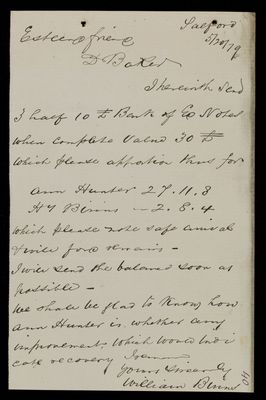 Salford
5/20/79
Esteemed friend
Dr Baker
I herewith Send
3 half 10 £ Bank of Notes
when Complete Value 30 £
which please apportion thus for
Ann Hunter 27.11.8
Hy Binns — 2.8.4
which please note safe arrival
& will send the balance soon as
possible —
We shall be glad to Know how
Ann Hunter is, whether any
improvement, which would indi
cate recovery
Yours Sincerely
William Binns
40